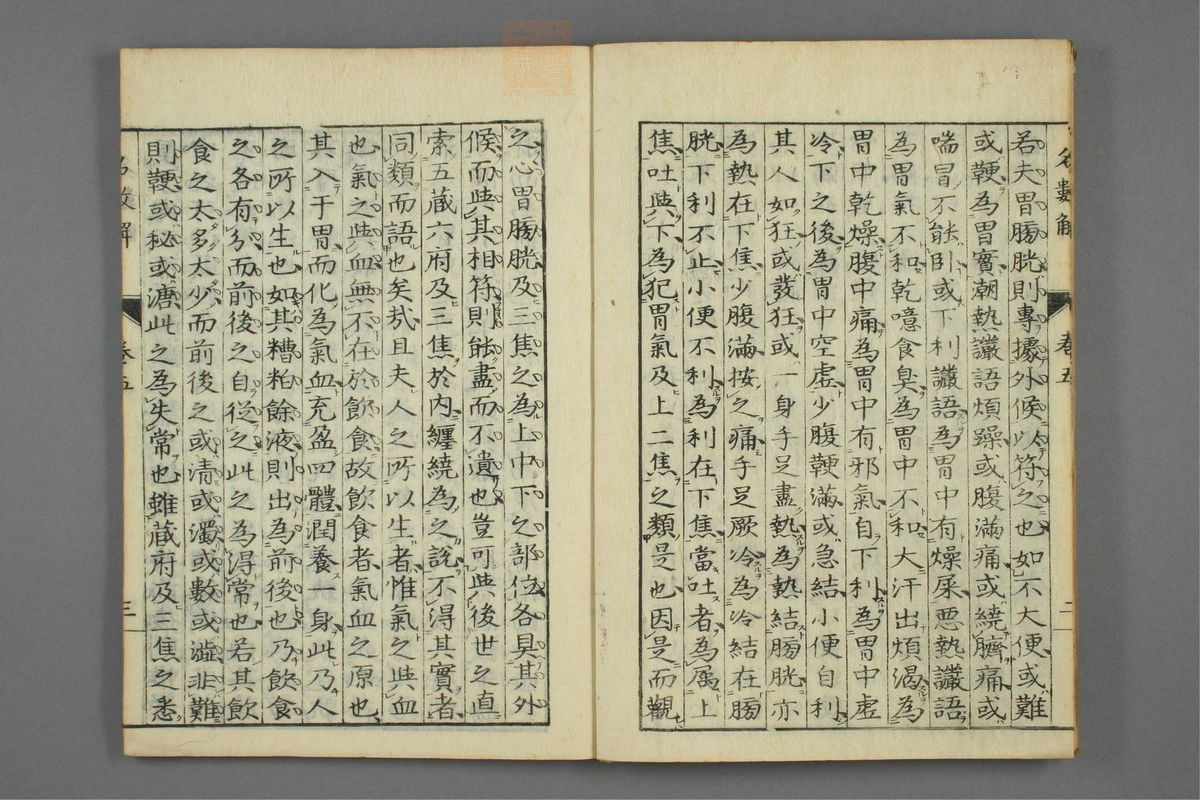 名數解 卷五 二
若夫胃膓胱則專據外候以符之也如不大便或難
或鞕為胃實潮熱讝語煩躁或腹滿痛或繞臍痛或
喘冒不能臥或下利讝語為胃中有燥屎惡熱讝語
為胃氣不和乾噫食臭為胃中不和大汗出煩渴為
胃中乾燥腹中痛為胃中有邪氣自下利為胃中虛
冷下之後為胃中空虛少腹鞕滿或急結小便自利
其人如狂或發狂或一身手足盡熱為熱結膓胱亦
為熱在下焦少腹滿按之痛手足厥冷為冷結在膓
胱下利不止小便不利為利在下焦當吐者為属上
焦吐與下為犯胃氣及上二焦之類是也因是而觀
之心胃膓胱及三焦之為上中下之部位各具其外
候而與其相符則能盡而不遺也豈可與後世之直
索五藏六府及三焦於內纏繞為之說不得其實者
同類而語也矣㢤且夫人之所以生者惟氣之與血
也氣之與血無不在於飲食故飲食者氣血之原也
其入于胃而化為氣血充盈四體潤養一身此乃人
之所以生也如其糟粕餘液則出為前後也乃飲食
之各有分而前後之自從之此之為得常也若其飲
食之太多太少而前後之或清或濁或數或澁非難
則鞕或秘或溏此之為失常也雖藏府及三焦之悉
名數解 卷五 三